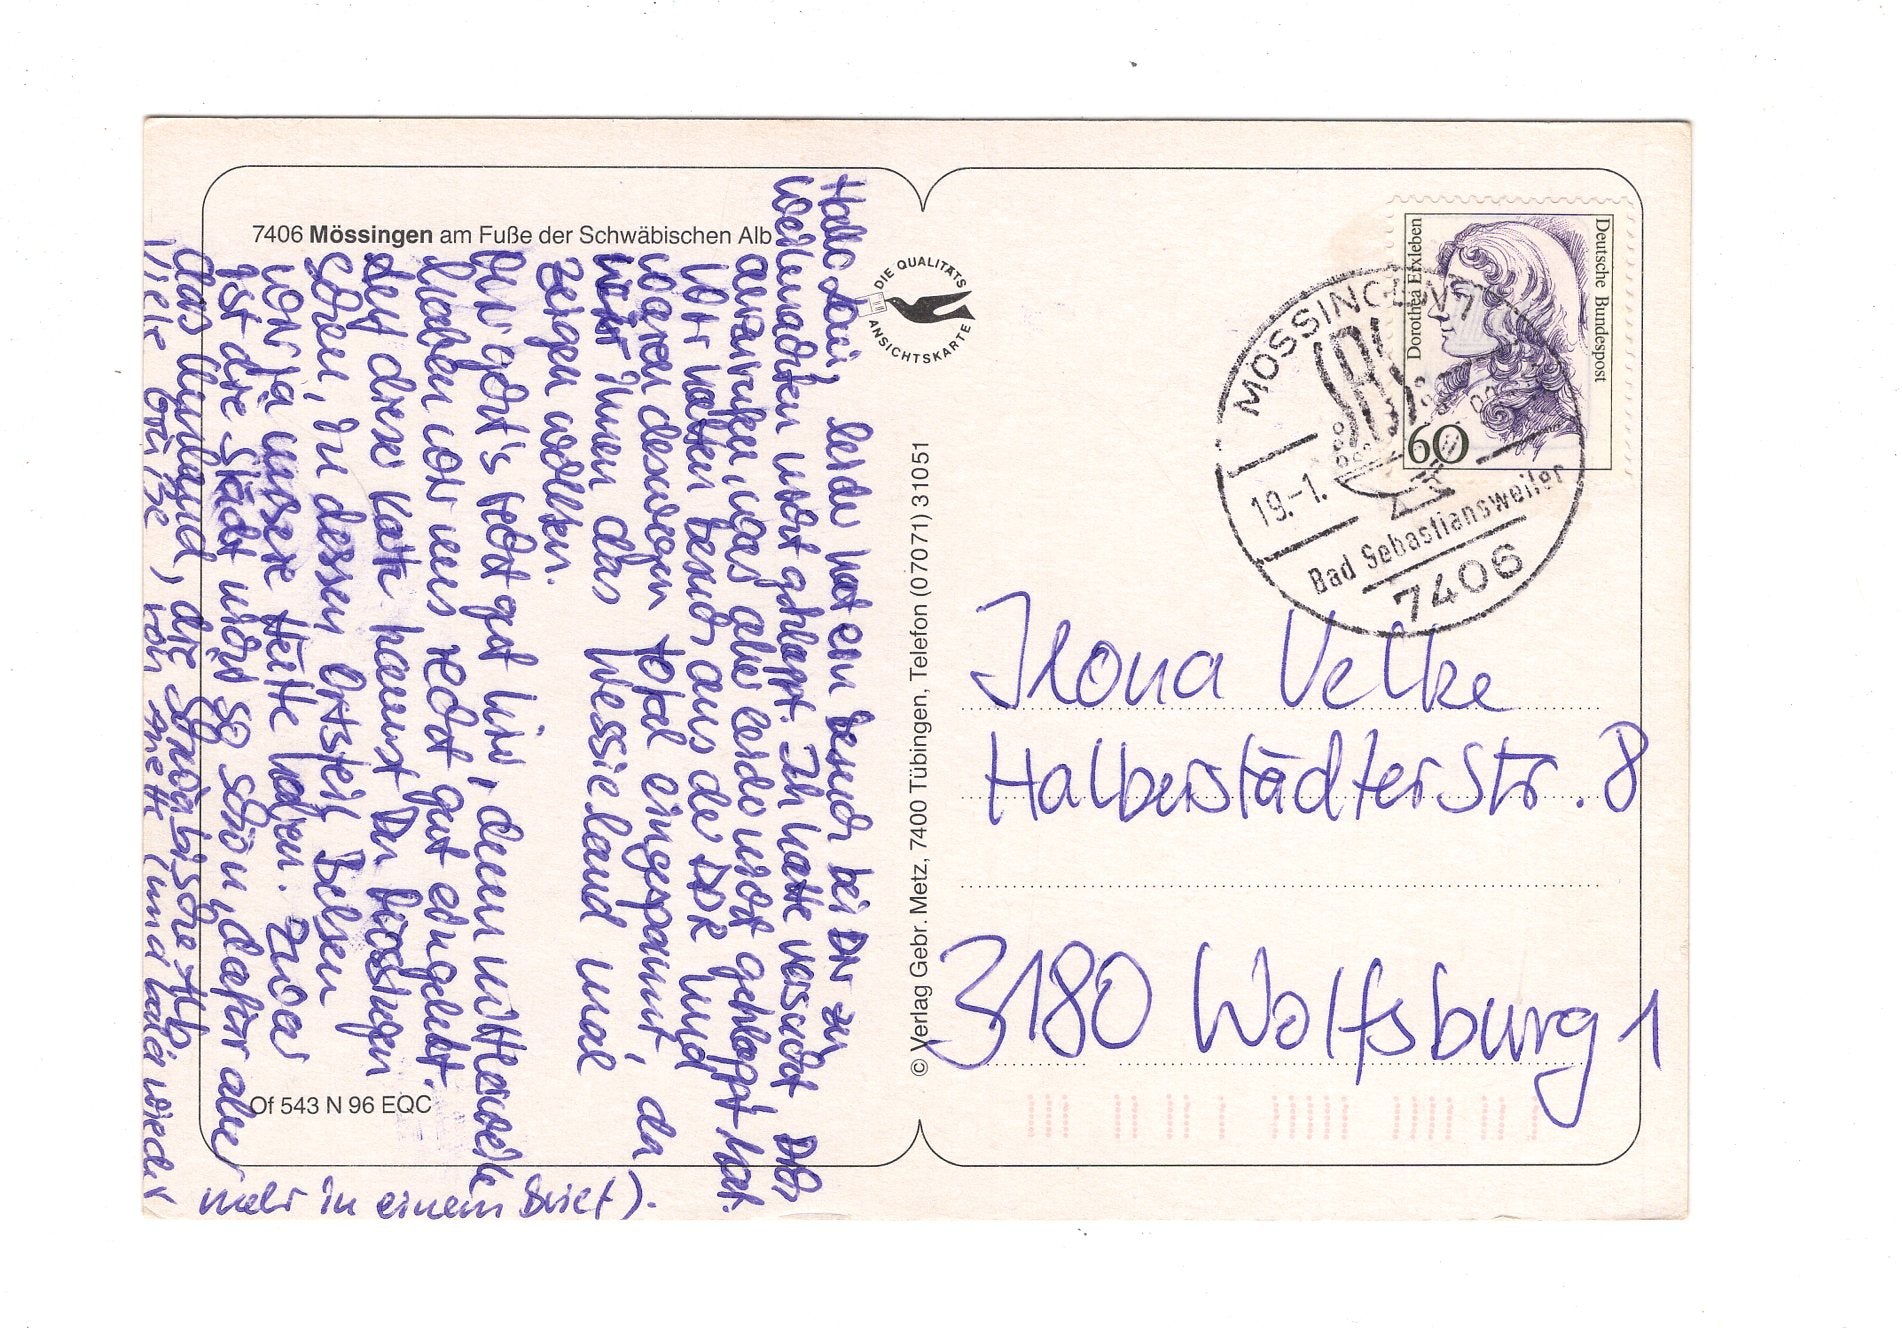 7406 Mössingen am Fuße der Schwäbischen Alb
Hallo, leider hat ein Besuch bei Dir zu
Weihnachten nicht geklappt. Ich hatte versucht Dich
anzurufen, was aber leider nicht geklappt hat.
Wir hatten Besuch aus der DDR und
waren deswegen total eingespannt, da
wir ihnen das Wessieland mal
zeigen wollten.
Mir geht's recht gut hier, denn mittlerweile
haben wir uns recht gut eingelebt.
Auf dieser Karte kannst Du Mössingen
sehen, in dessen Ortsteil Belsen
wir ja unsere Hütte haben. Zwar
ist die Stadt nicht so schön, dafür aber
das Umland, die Schwäbische Alb.
Viele Grüße, von Anett (und bald wieder
mehr in einem Brief).
DIE QUALITÄTS
ANSICHTSKARTE
© Verlag Gebr. Metz, 7400 Tübingen, Telefon (07071) 31051
Of 543 N 96 EQC
Deutsche Bundespost
Dorothea Erxleben
60
MÖSSINGEN 1
19.-1.
Bad Sebastiansweiler
7406
Ilona Vetke
Halberstädterstr. 8
3180 Wolfsburg 1